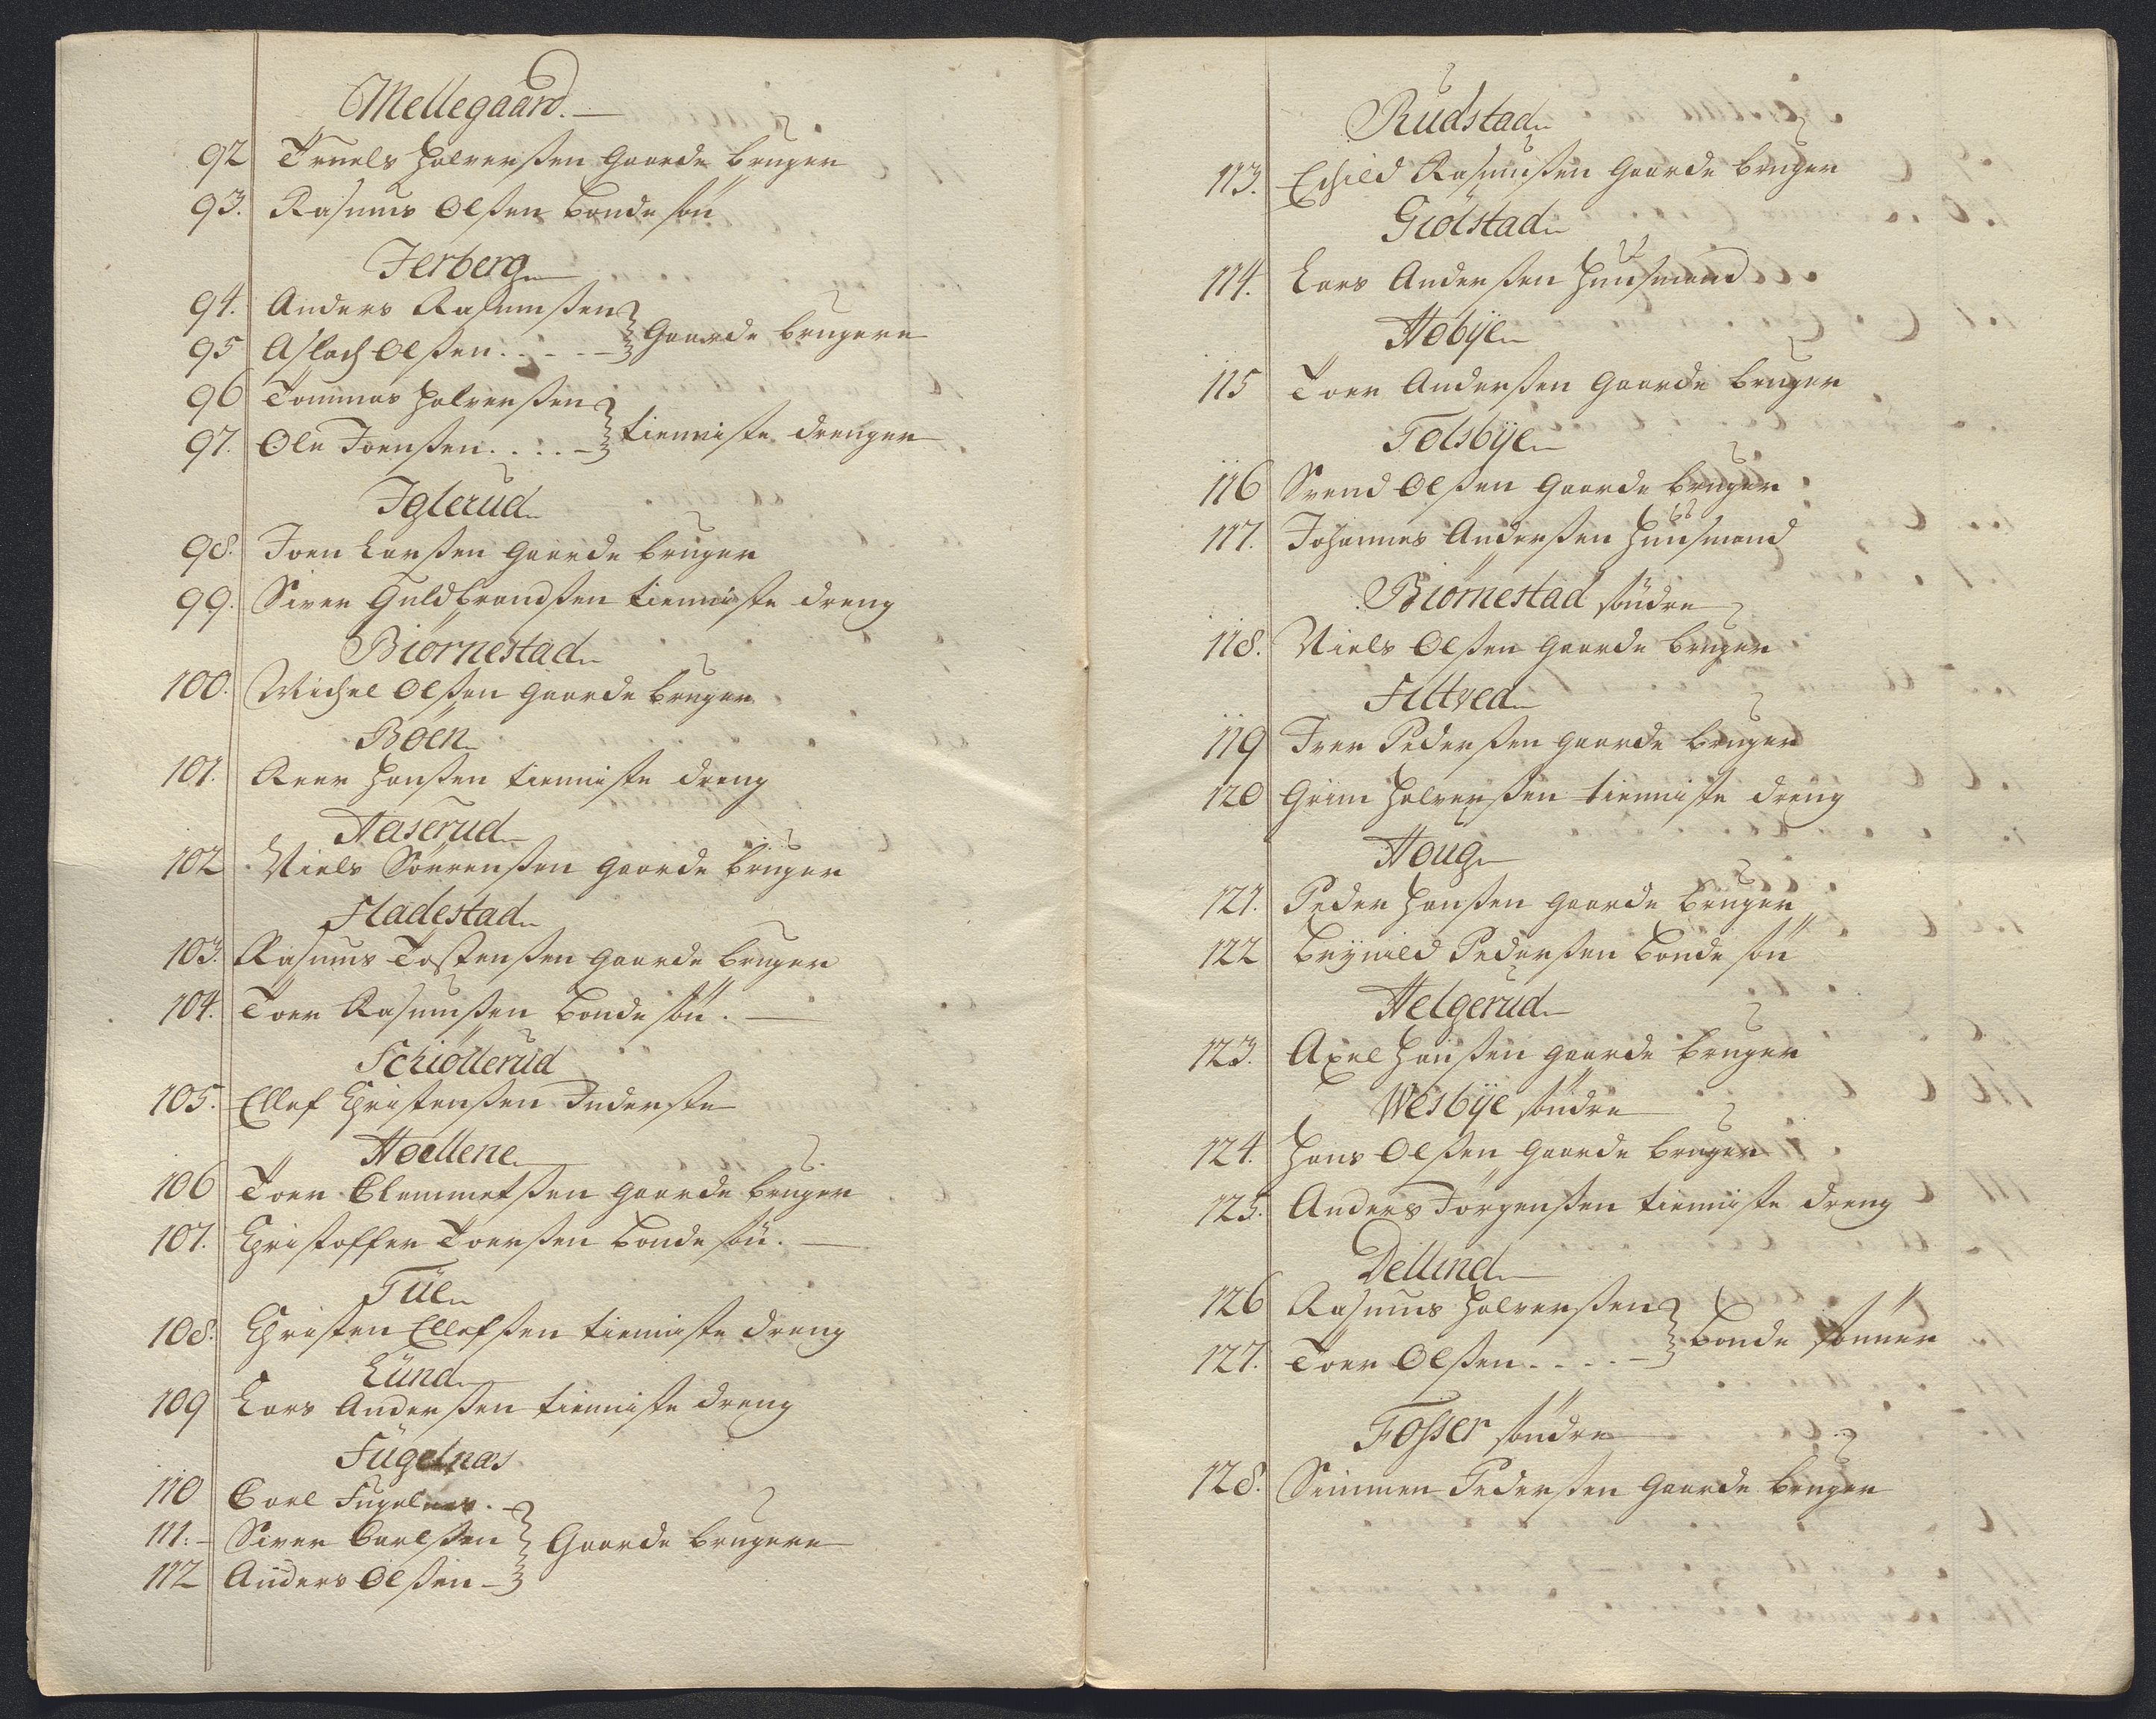 Mellegaard.
92 Truels Halversen Gaarde bruger
93. Rasmus Olsen bonde søn
Jerberg
94. Anders Rasmussen } Gaarde brugere
95 Aslach Olsen . . . .
96 Tommas Halversen } tienniste drenger
97. Ole Joensen . . . .
Iglerud
98. Joen Larsen Gaarde bruger
99. Siver Guldbrandsen tienniste dreng
Biörnestad
100. Michel Olsen Gaarde bruger
Böen
101. Aren Hansen tienniste dreng
Haserud
102 Niels Sörrensen Gaarde bruger
Fladestad
103. Rasmus Tostensen Gaarde bruger
104. Toer Rasmussen bonde søn.
Schiöllerüd
105. Ellef Christensen Inderste
Hoellene
106 Toer Clemmetsen Gaarde bruger
107. Christoffer Toersen bonde søn.
Tüe
108. Christen Ellefsen tienniste dreng
Lünd
109 Lars Andersen tienniste dreng
Fügelnæs
110 Carl Fugelnæs.
111. Siver Carlsen } Gaarde brugere
112 Anders Olsen
Rudstad
113. Eschild Rasmussen Gaarde bruger
Giölstad
114. Lars Andersen Huusmand
Hobÿe
115 Toer Andersen Gaarde bruger
Tolsbÿe
116 Svend Olsen Gaarde bruger
117. Johannes Andersen Huusmand
Biörnestad söndre
118. Niels Olsen Gaarde bruger
Fittved
119 Iver Pedersen Gaarde bruger
120 Grim Halversen tienniste dreng
Houg
121. Peder Hansen Gaarde bruger
122 Brynild Pedersen bonde søn
Helgerud
123. Axel Hansen Gaarde bruger
Wesbÿe söndre
124. Hans Olsen Gaarde bruger
125. Anders Jörgensen tienniste dreng
Dellind
126 Rasmus Halversen } bonde sönner
127. Toer Olsen . . . .
Fosser söndre
128. Simmen Pedersen Gaarde bruger